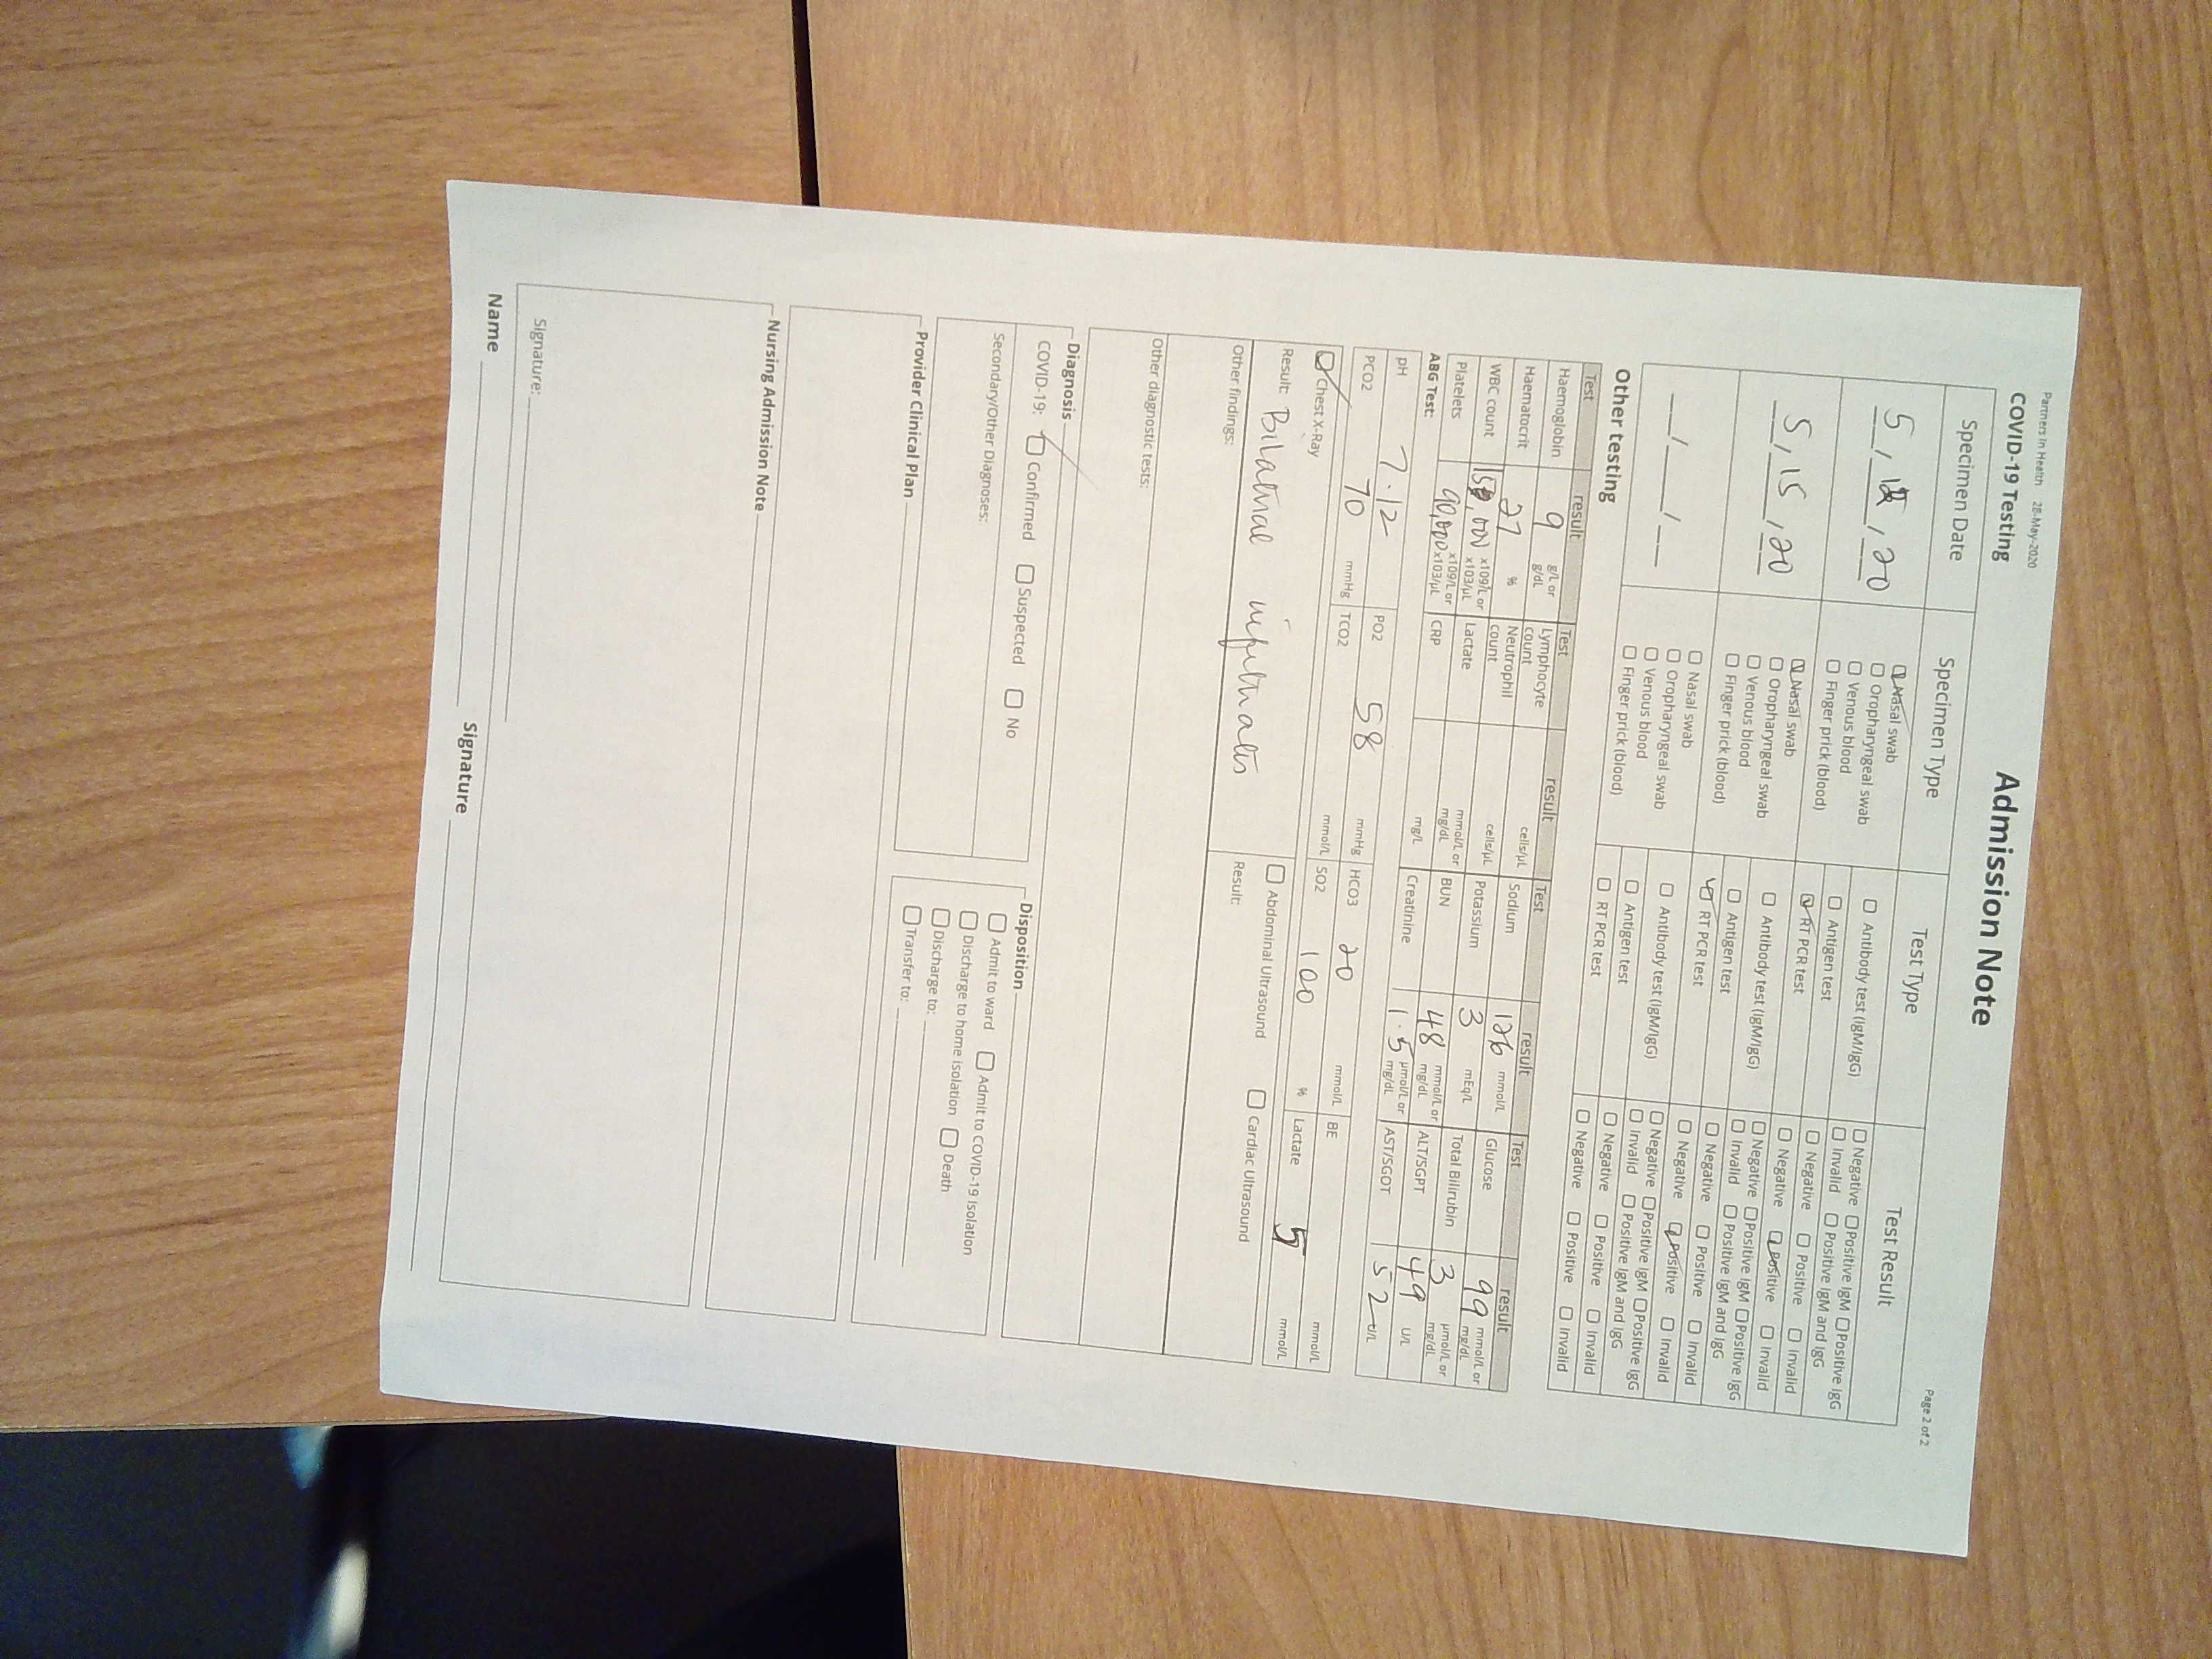 Partners In Health 28-May-2020
Page 2 of 2
Admission Note
COVID-19 Testing
Specimen Date Specimen Type Test Type Test Result
5 / / 20
☑ Nasal swab
☐ Oropharyngeal swab
☐ Venous blood
☐ Finger prick (blood)
☐ Antibody test (IgM/IgG)
☐ Negative ☐ Positive IgM ☐ Positive IgG
☐ Invalid ☐ Positive IgM and IgG
☐ Antigen test
☐ Negative ☐ Positive ☐ Invalid
☑ RT PCR test
☐ Negative ☑ Positive ☐ Invalid
5 / 15 / 20
☑ Nasal swab
☐ Oropharyngeal swab
☐ Venous blood
☐ Finger prick (blood)
☐ Antibody test (IgM/IgG)
☐ Negative ☐ Positive IgM ☐ Positive IgG
☐ Invalid ☐ Positive IgM and IgG
☐ Antigen test
☐ Negative ☐ Positive ☐ Invalid
☑ RT PCR test
☐ Negative ☑ Positive ☐ Invalid
__/__/__
☐ Nasal swab
☐ Oropharyngeal swab
☐ Venous blood
☐ Finger prick (blood)
☐ Antibody test (IgM/IgG)
☐ Negative ☐ Positive IgM ☐ Positive IgG
☐ Invalid ☐ Positive IgM and IgG
☐ Antigen test
☐ Negative ☐ Positive ☐ Invalid
☐ RT PCR test
☐ Negative ☐ Positive ☐ Invalid
Other testing
Test result Test result Test result Test result
Haemoglobin 9 g/L or g/dL Lymphocyte count cells/µL Sodium 126 mmol/L Glucose 99 mmol/L or mg/dL
Haematocrit 27 % Neutrophil count cells/µL Potassium 3 mEq/L Total Bilirubin 3 µmol/L or mg/dL
WBC count x109/L or x103/µL Lactate mmol/L or mg/dL BUN 48 mmol/L or mg/dL ALT/SGPT 49 U/L
Platelets 90,000 x109/L or x103/µL CRP mg/L Creatinine 1.5 µmol/L or mg/dL AST/SGOT 52 U/L
ABG Test:
pH 7.12 PO2 58 mmHg HCO3 20 mmol/L BE mmol/L
PCO2 70 mmHg TCO2 mmol/L SO2 100 % Lactate 5 mmol/L
☑ Chest X-Ray ☐ Abdominal Ultrasound ☐ Cardiac Ultrasound
Result: Bilatral infiltrates Result:
Other findings:
Other diagnostic tests:
Diagnosis
COVID-19: ☑ Confirmed ☐ Suspected ☐ No
Secondary/Other Diagnoses:
Disposition
☐ Admit to ward ☐ Admit to COVID-19 Isolation
☐ Discharge to home isolation ☐ Death
☐ Discharge to:
☐ Transfer to:
Provider Clinical Plan
Nursing Admission Note
Signature:
Name Signature